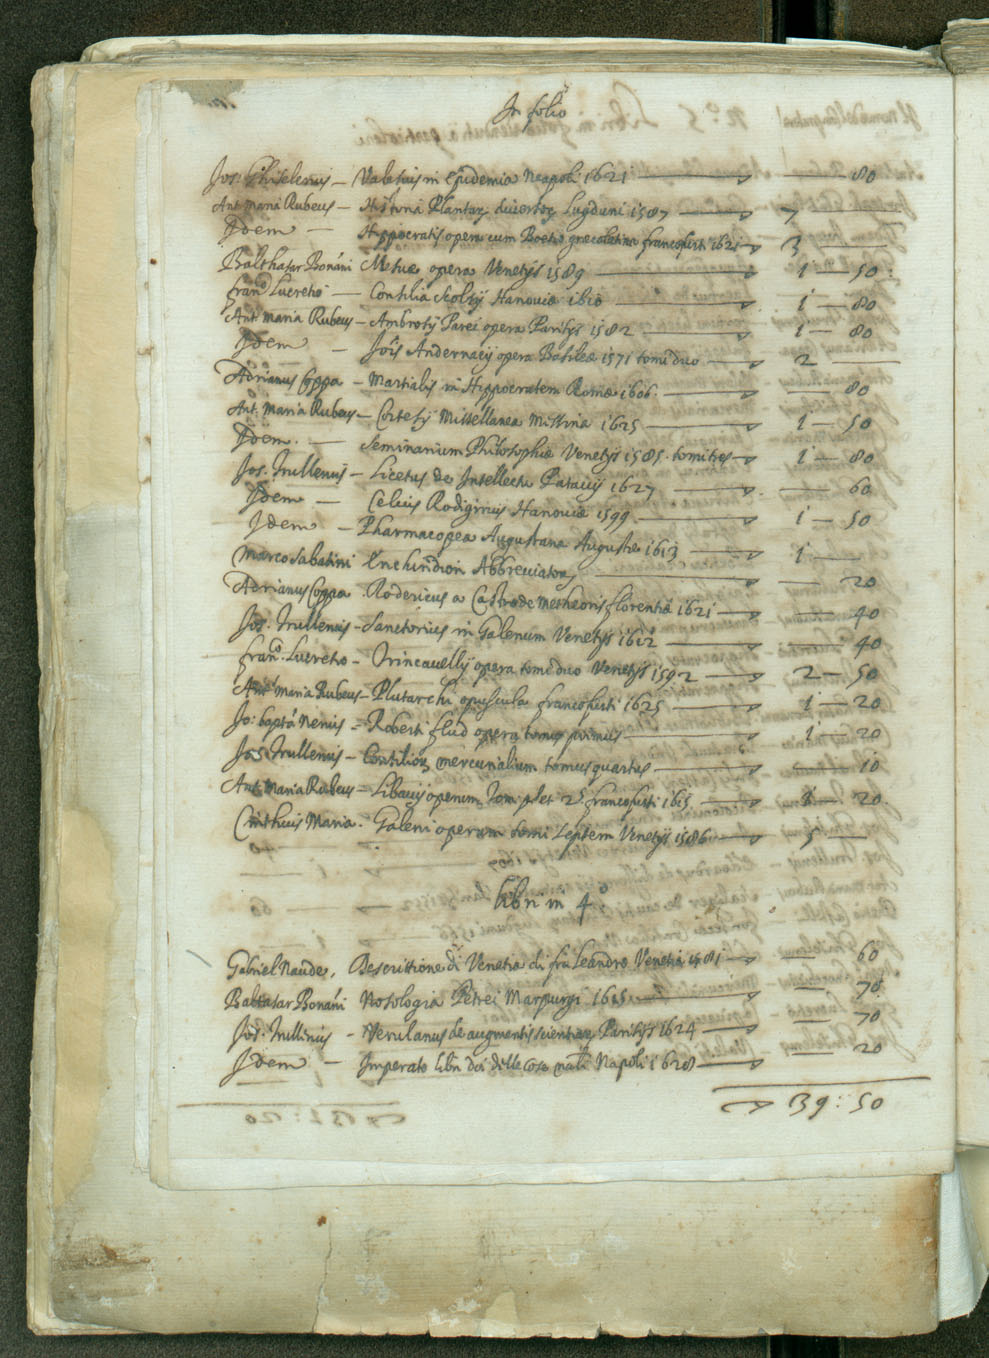 In folio
Jos: Ghiselenus – Valesius in Epidemia Neapoli 1621 — 80
Ant. Maria Rubeus – Historia Plantar. Lugduni 1587 — 7 —
Idem — Hippocratis opera cum Foetio grecolatina francofurti 1621 — 3 —
Balthasar Bonáni Mesue opera Venetijs 1589 — 1 — 50
Fran.º Lucretio — Consilia Scolzij Hanoviæ 1610 — 1 — 80
Ant. Maria Rubeus – Ambrosij Parei opera Parisijs 1582 — 1 — 80
Idem — Jois Andernacij opera Basileæ 1571 tomi duo — 2 —
Adrianus Coppa – Martialis in Hippocratem Romæ 1606. — 80
Ant. Maria Rubeus – Cortesij Missellanea Missina 1625 — 1 — 50
Idem. — Seminarium Philosophiæ Venetijs 1585. tomi tres — 1 — 80
Jos. Trullenus – Licetus de Intellectu Patavij 1627 — 60
Idem — Celius Rodiginus Hanoviæ 1599 — 1 — 50
Idem – Pharmacopea Augustana Augustæ 1613 — 1 —
Marco Sabatini Enchiridion Abbreviator — 20
Adrianus Coppa. Rodericus a Castro de Metheoris florentiæ 1621 — 40
Jos. Trullenus – Sanctorius in Galenum Venetijs 1612 — 40
Fran.º Lucretio – Trincavellij opera tomi duo Venetijs 1592 — 2 — 50
Ant. Maria Rubeus – Plutarchi opuscula francofurti 1625 — 1 — 20
Jo: bapta Nenius – Roberti flud opera tomus primus — 1 — 20
Jos. Trullenus – Consilior. mercurialium tomus quartus — 10
Ant. Maria Rubeus – Libavij operum Tom. et 2.º francofurti 1615 — 20
Maria. Galeni operum tomi septem Venetijs 1586. — 5 —
Libri in 4º
Gabriel Naude. Descrittione di Venetia di fra Leandro Venetia 1581 — 60
Baltasar Bonáni Nosologia Petrei Marpurgi — 70
Jos. Trullinus – Verulanus de augmentis scientiar. Parisijs 1624 — 70
Idem — Imperato libri delle cose natli Napoli 1628 — 20
39 : 50